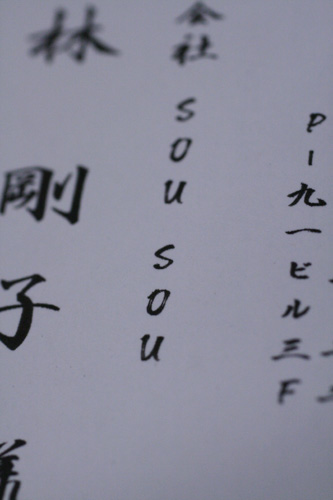 P-九一ビル三F
会社 SOU SOU
林 剛子 様